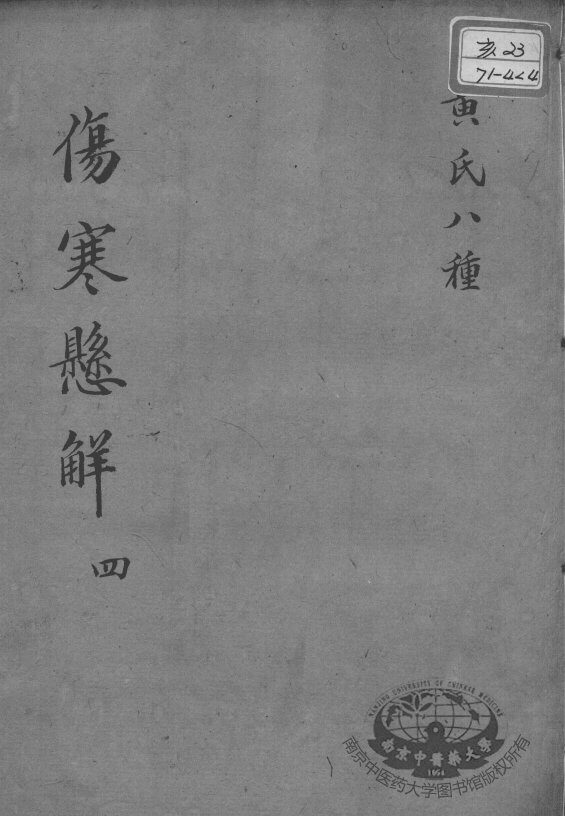 亥23
71-424
黄氏八種
傷寒懸解
四
NANJING UNIVERSITY OF CHINESE MEDICINE
南京中醫藥大學
1954
南京中医药大学图书馆版权所有